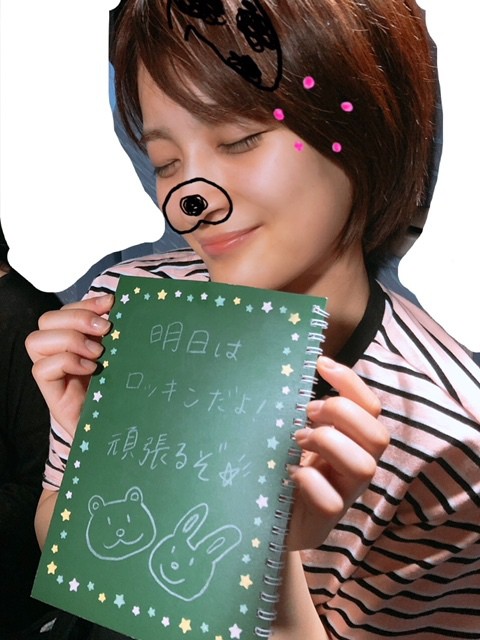 明日は
ロッキンだよ!
頑張るぞ☆彡